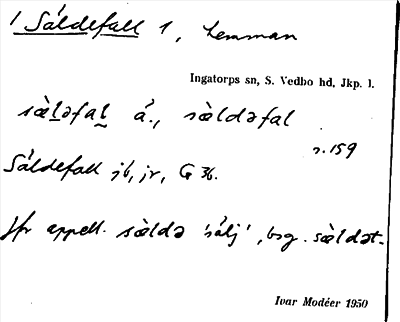 / Säldefall 1, hemman
Ingatorps sn, S. Vedbo hd, Jkp. l.
sæ̀lǝfal á., sæ̀ldǝfal
s. 159
Säldefall jb, jr, G 36.
Jfr appell. sæ̀ldǝ 'sälj', bsg. sæ̀ldǝt.
Ivar Modéer 1950